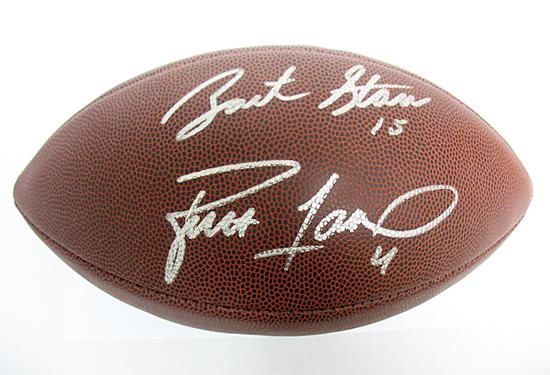 Bart Starr
15
Brett Favre
4